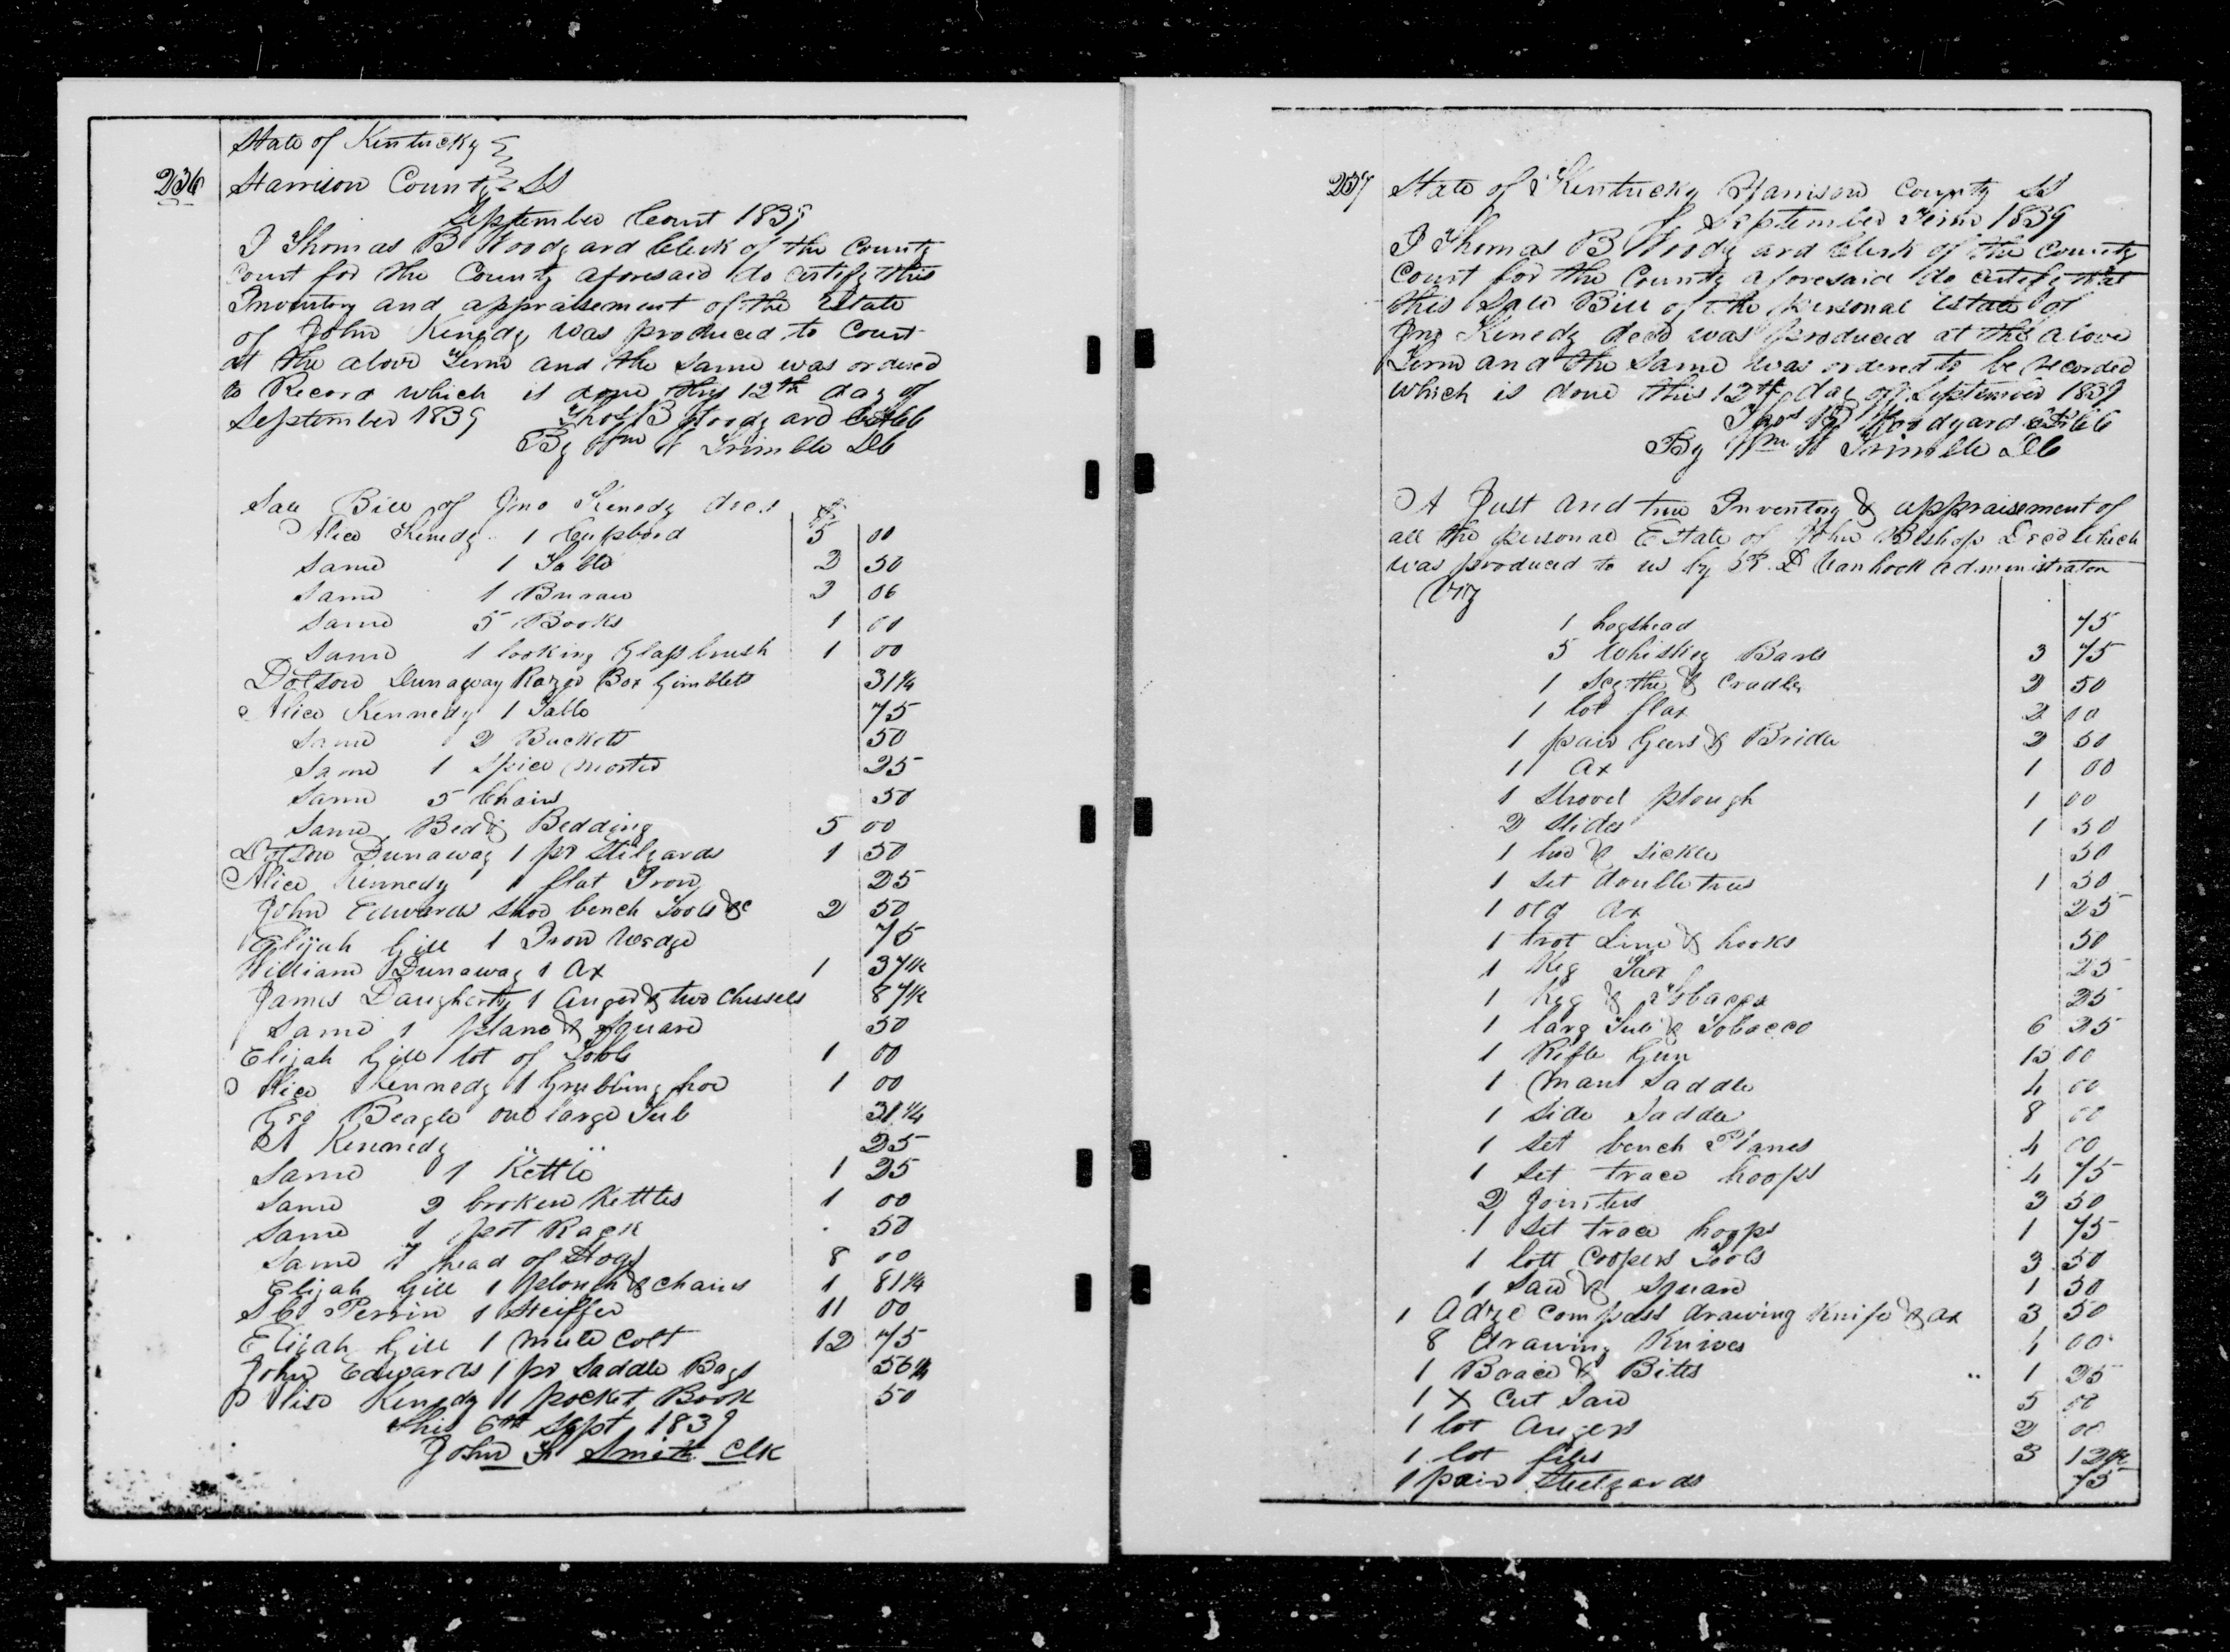 State of Kentucky
236 Harrison County SS
September Court 1839
I Thomas B Woodyard Clerk of the County
Court for the County aforesaid do certify this
Inventory and appraisement of the Estate
of John Kenedy was produced to Court
at the above Term and the same was ordered
to Record which is done this 12th day of
September 1839 Thos B Woodyard
By Wm Trimble DC
Sale Bill of Jno Kenedy decd $
Alice Kenedy 1 Cupbord 5 00
Same 1 Table 2 50
Same 1 Bureau 3 06
Same 5 Books 1 00
Same 1 looking Glass brush 1 00
Dotson Dunaway Razor Box Gimblets 31 1/4
Alice Kennedy 1 Table 75
Same 2 Buckets 50
Same 1 Spice morter 25
Same 5 Chairs 50
Same Bed & Bedding 5 00
Dotson Dunaway 1 pr Stilyards 1 50
Alice Kennedy 1 flat Iron 25
John Edwards Shoe bench Tools &c 2 50
Elijah Gill 1 Iron Wedge 75
William Dunaway 1 Ax 1 37 1/2
James Daugherty 1 Auger & two Chessels 87 1/2
Same 1 plane & Square 50
Elijah Gill lot of Tools 1 00
Alice Kennedy 1 Grubbing hoe 1 00
Geo Beagle one large Tub 31 1/4
A Kennedy " " 25
Same 1 Kettle 1 25
Same 2 broken Kettles 1 00
Same 1 pot Rack 50
Same 7 head of Hogs 8 00
Elijah Gill 1 plough & chains 1 81 1/4
Perrin 1 Heiffer 11 00
Elijah Gill 1 mule Colt 12 75
John Edwards 1 pr Saddle Bags 56 1/4
Alise Kenedy 1 pocket Book 50
This 6th Sept 1839
John Smith Clk
237 State of Kentucky Harrison County SS
September Term 1839
I Thomas B Woodyard Clerk of the County
Court for the County aforesaid do certify that
this Sale Bill of the personal estate of
Jno Kenedy decd was produced at the above
Term and the same was ordered to be recorded
which is done this 12th day of September 1839
Thos B Woodyard
By Wm Trimble DC
A Just and true Inventory & appraisement of
all the personal Estate of John Bishop Decd which
was produced to us by R. D Vanhook administrator
Viz
1 hogshead 75
5 Whiskey Barrls 3 75
1 Scythe & Cradle 2 50
1 lot flax 2 00
1 pair Gears & Bridle 2 50
1 Ax 1 00
1 Shovel plough 1 00
2 Slides 1 50
1 hoe & sickle 50
1 Set double trees 1 50
1 old Ax 25
1 trot Line & hooks 50
1 Keg Tarr 25
1 Keg & Tobacco 25
1 larg Tub & Tobacco 6 25
1 Rifle Gun 15 00
1 Mans Saddle 4 00
1 Side Saddle 8 00
1 Set bench Planes 4 00
1 Set trace hoops 4 75
2 Jointers 3 50
1 Set trace hoops 1 75
1 lott Coopers Tools 3 50
1 Saw & Square 1 50
1 Adze Compass drawing Knife & ax 3 50
8 drawing Knives 4 00
1 Brace & Bitts 1 25
1 X Cut Saw 5 00
1 lot Augers 2 00
1 lot files 3 12 1/2
1 pair Steelyards 75